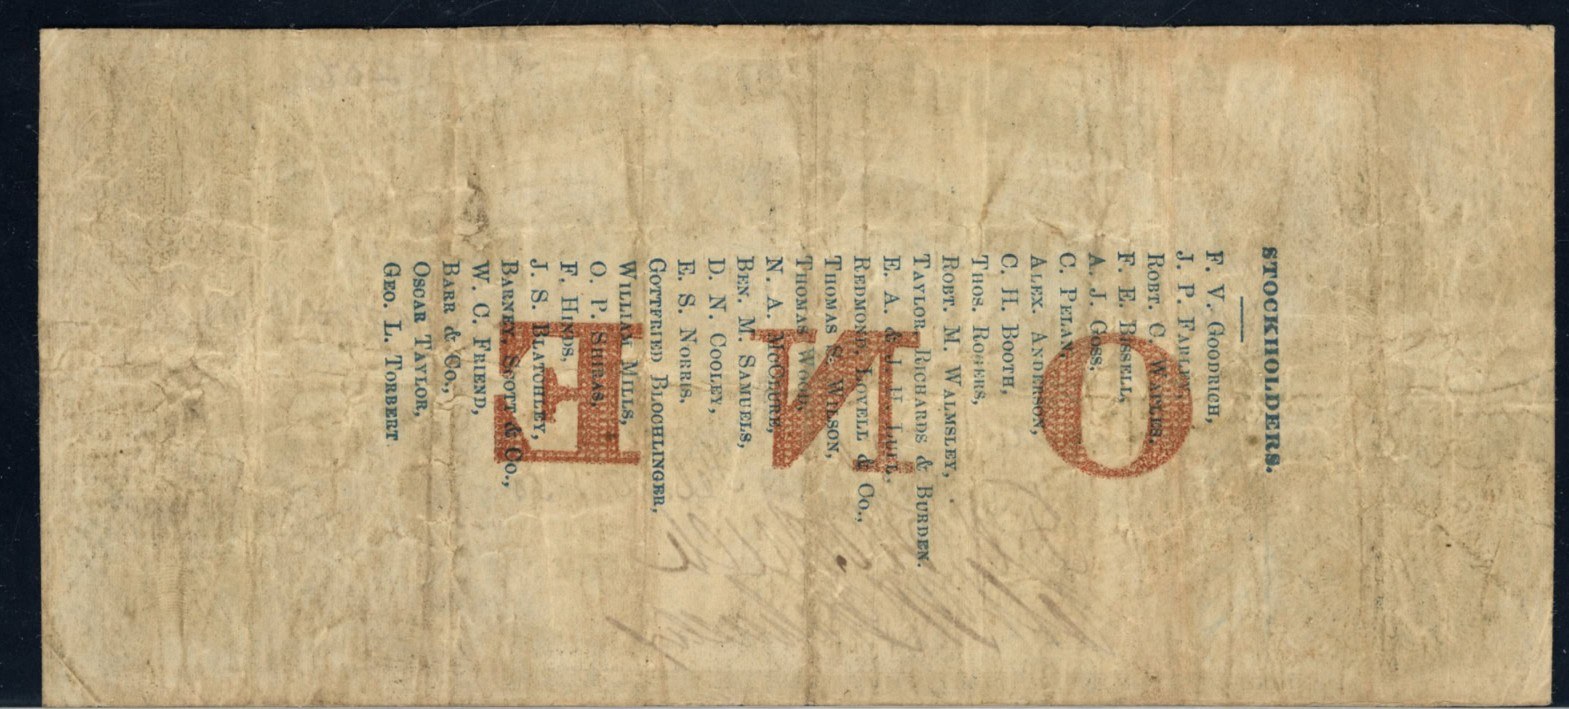 STOCKHOLDERS.
F. V. GOODRICH,
J. P. FARLEY,
ROBT. C. WAPLES,
F. E. BISSELL,
A. J. GOSS,
C. PELAN,
ALEX. ANDERSON,
C. H. BOOTH,
THOS. ROGERS,
ROBT. M. WALMSLEY,
TAYLOR, RICHARDS & BURDEN.
E. A. &
REDMOND, LOVELL & CO.,
THOMAS S. WILSON,
THOMAS WOOD,
N. A. MCCLURE,
BEN. M. SAMUELS,
D. N. COOLEY,
E. S. NORRIS,
GOTTFRIED BLOCHLINGER,
WILLIAM MILLS,
O. P. SHIRAS,
F. HINDS,
J. S. BLATCHLEY,
BARNEY, SCOTT & CO.,
W. C. FRIEND,
BARR & CO.,
OSCAR TAYLOR,
GEO. L. TORBERT
ONE